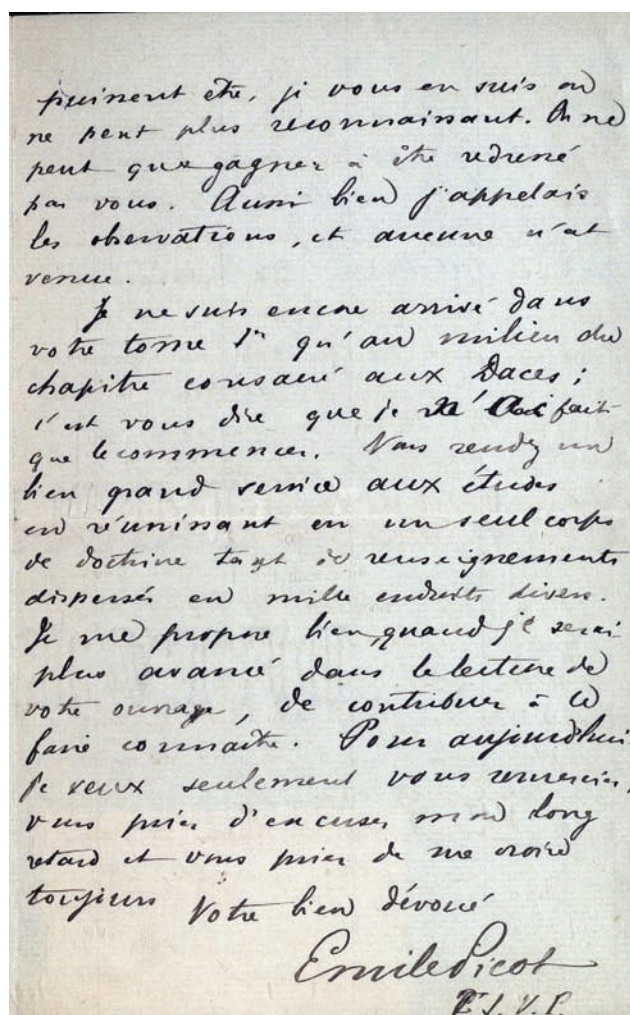 puissent être, je vous en suis on
ne peut plus reconnaissant. On ne
peut que gagner à être redressé
par vous. Aussi bien j'appelais
les observations, et aucune n'est
venue.
Je ne suis encore arrivé dans
votre tome Ier qu'au milieu du
chapitre consacré aux Daces ;
c'est vous dire que je n'ai fait
que le commencer. Vous rendez un
bien grand service aux études
en réunissant en un seul corps
de doctrine tant de renseignements
dispersés en mille endroits divers.
Je me propose bien, quand je serai
plus avancé dans la lecture de
votre ouvrage, de contribuer à le
faire connaître. Pour aujourd'hui
je veux seulement vous remercier,
vous prier d'excuser mon long
retard et vous prier de me croire
toujours Votre bien dévoué
Emile Picot
T.S.V.P.